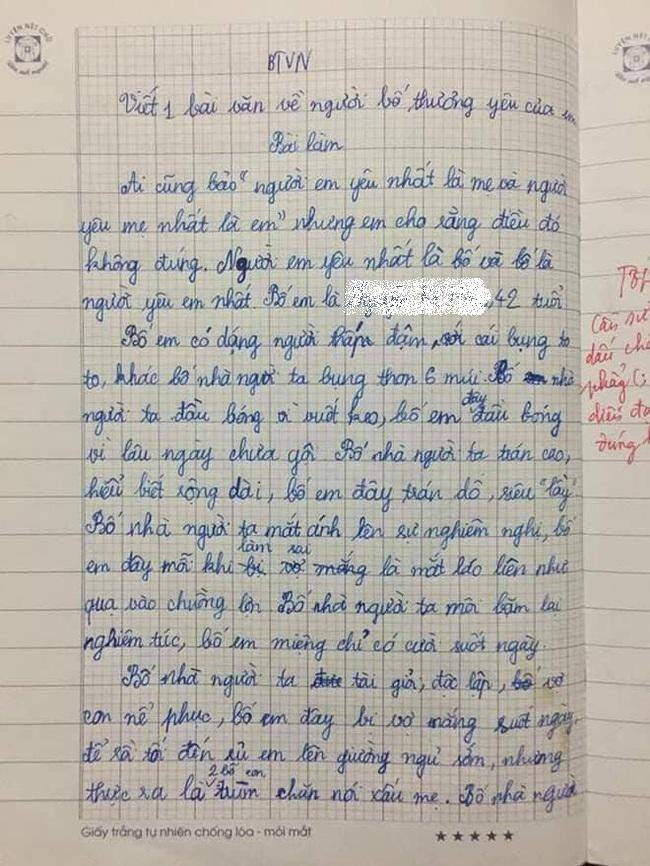 LUYỆN NÉT CHỮ
BTVN
Viết 1 bài văn về người bố thương yêu của em
Bài làm
Ai cũng bảo "người em yêu nhất là mẹ và người
yêu mẹ nhất là em" nhưng em cho rằng điều đó
không đúng. Người em yêu nhất là bố và bố là
người yêu em nhất. Bố em là , 42 tuổi
Bố em có dáng người thấp đậm, với cái bụng to
to, khác bố nhà người ta bụng thon 6 múi. Bố nhà
người ta đầu bóng vì vuốt keo, bố em đây đầu bóng
vì lâu ngày chưa gội. Bố nhà người ta trán cao,
hiểu biết rộng dài, bố em đây trán dô, siêu "lầy"
Bố nhà người ta mắt ánh lên sự nghiêm nghị, bố
em đây mỗi khi làm sai là mắt láo liên như
quạ vào chuồng lợn Bố nhà người ta môi bặm lại
nghiêm túc, bố em miệng chỉ có cười suốt ngày.
Bố nhà người ta tài giỏi, độc lập, vợ
con nể phục, bố em đây bị vợ mắng suốt ngày
để rồi tối đến rủ em lên giường ngủ sớm, nhưng
thực ra là 2 bố con trùm chăn nói xấu mẹ. Bố nhà người
Giấy trắng tự nhiên chống lóa - mỏi mắt